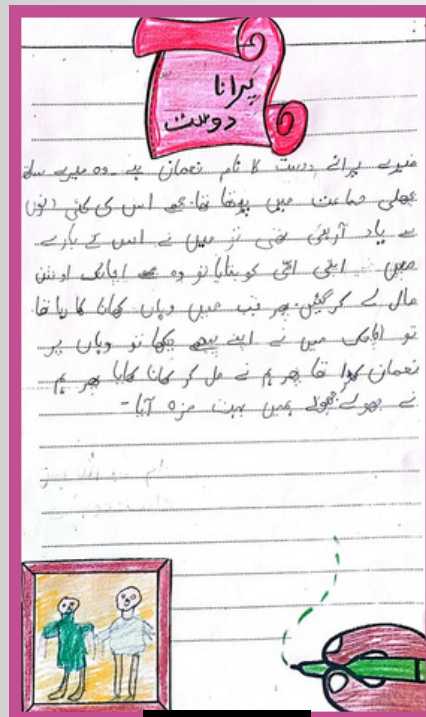 پرانا
دوست
میرے پرانے دوست کا نام نعمان ہے۔ وہ میرے ساتھ
پچھلی جماعت میں پڑھتا تھا مجھے اس کی کئی دنوں
سے یاد آرہی تھی تو میں نے اس کے بارے
میں اپنی امی کو بتایا تو وہ مجھے اچانک اوشن
مال لے کر گئیں پھر جب میں وہاں کھانا کھا رہا تھا
تو اچانک میں نے اپنے پیچھے دیکھا تو وہاں پر
نعمان کھڑا تھا پھر ہم نے مل کر کھانا کھایا پھر ہم
نے جھولے جھولے ہمیں بہت مزہ آیا۔